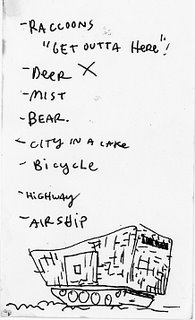 -RACCOONS
"GET OUTTA HERE"!
-DEER X
-MIST
-BEAR.
-CITY IN A LAKE
-BICYCLE
-HIGHWAY
-AIRSHIP